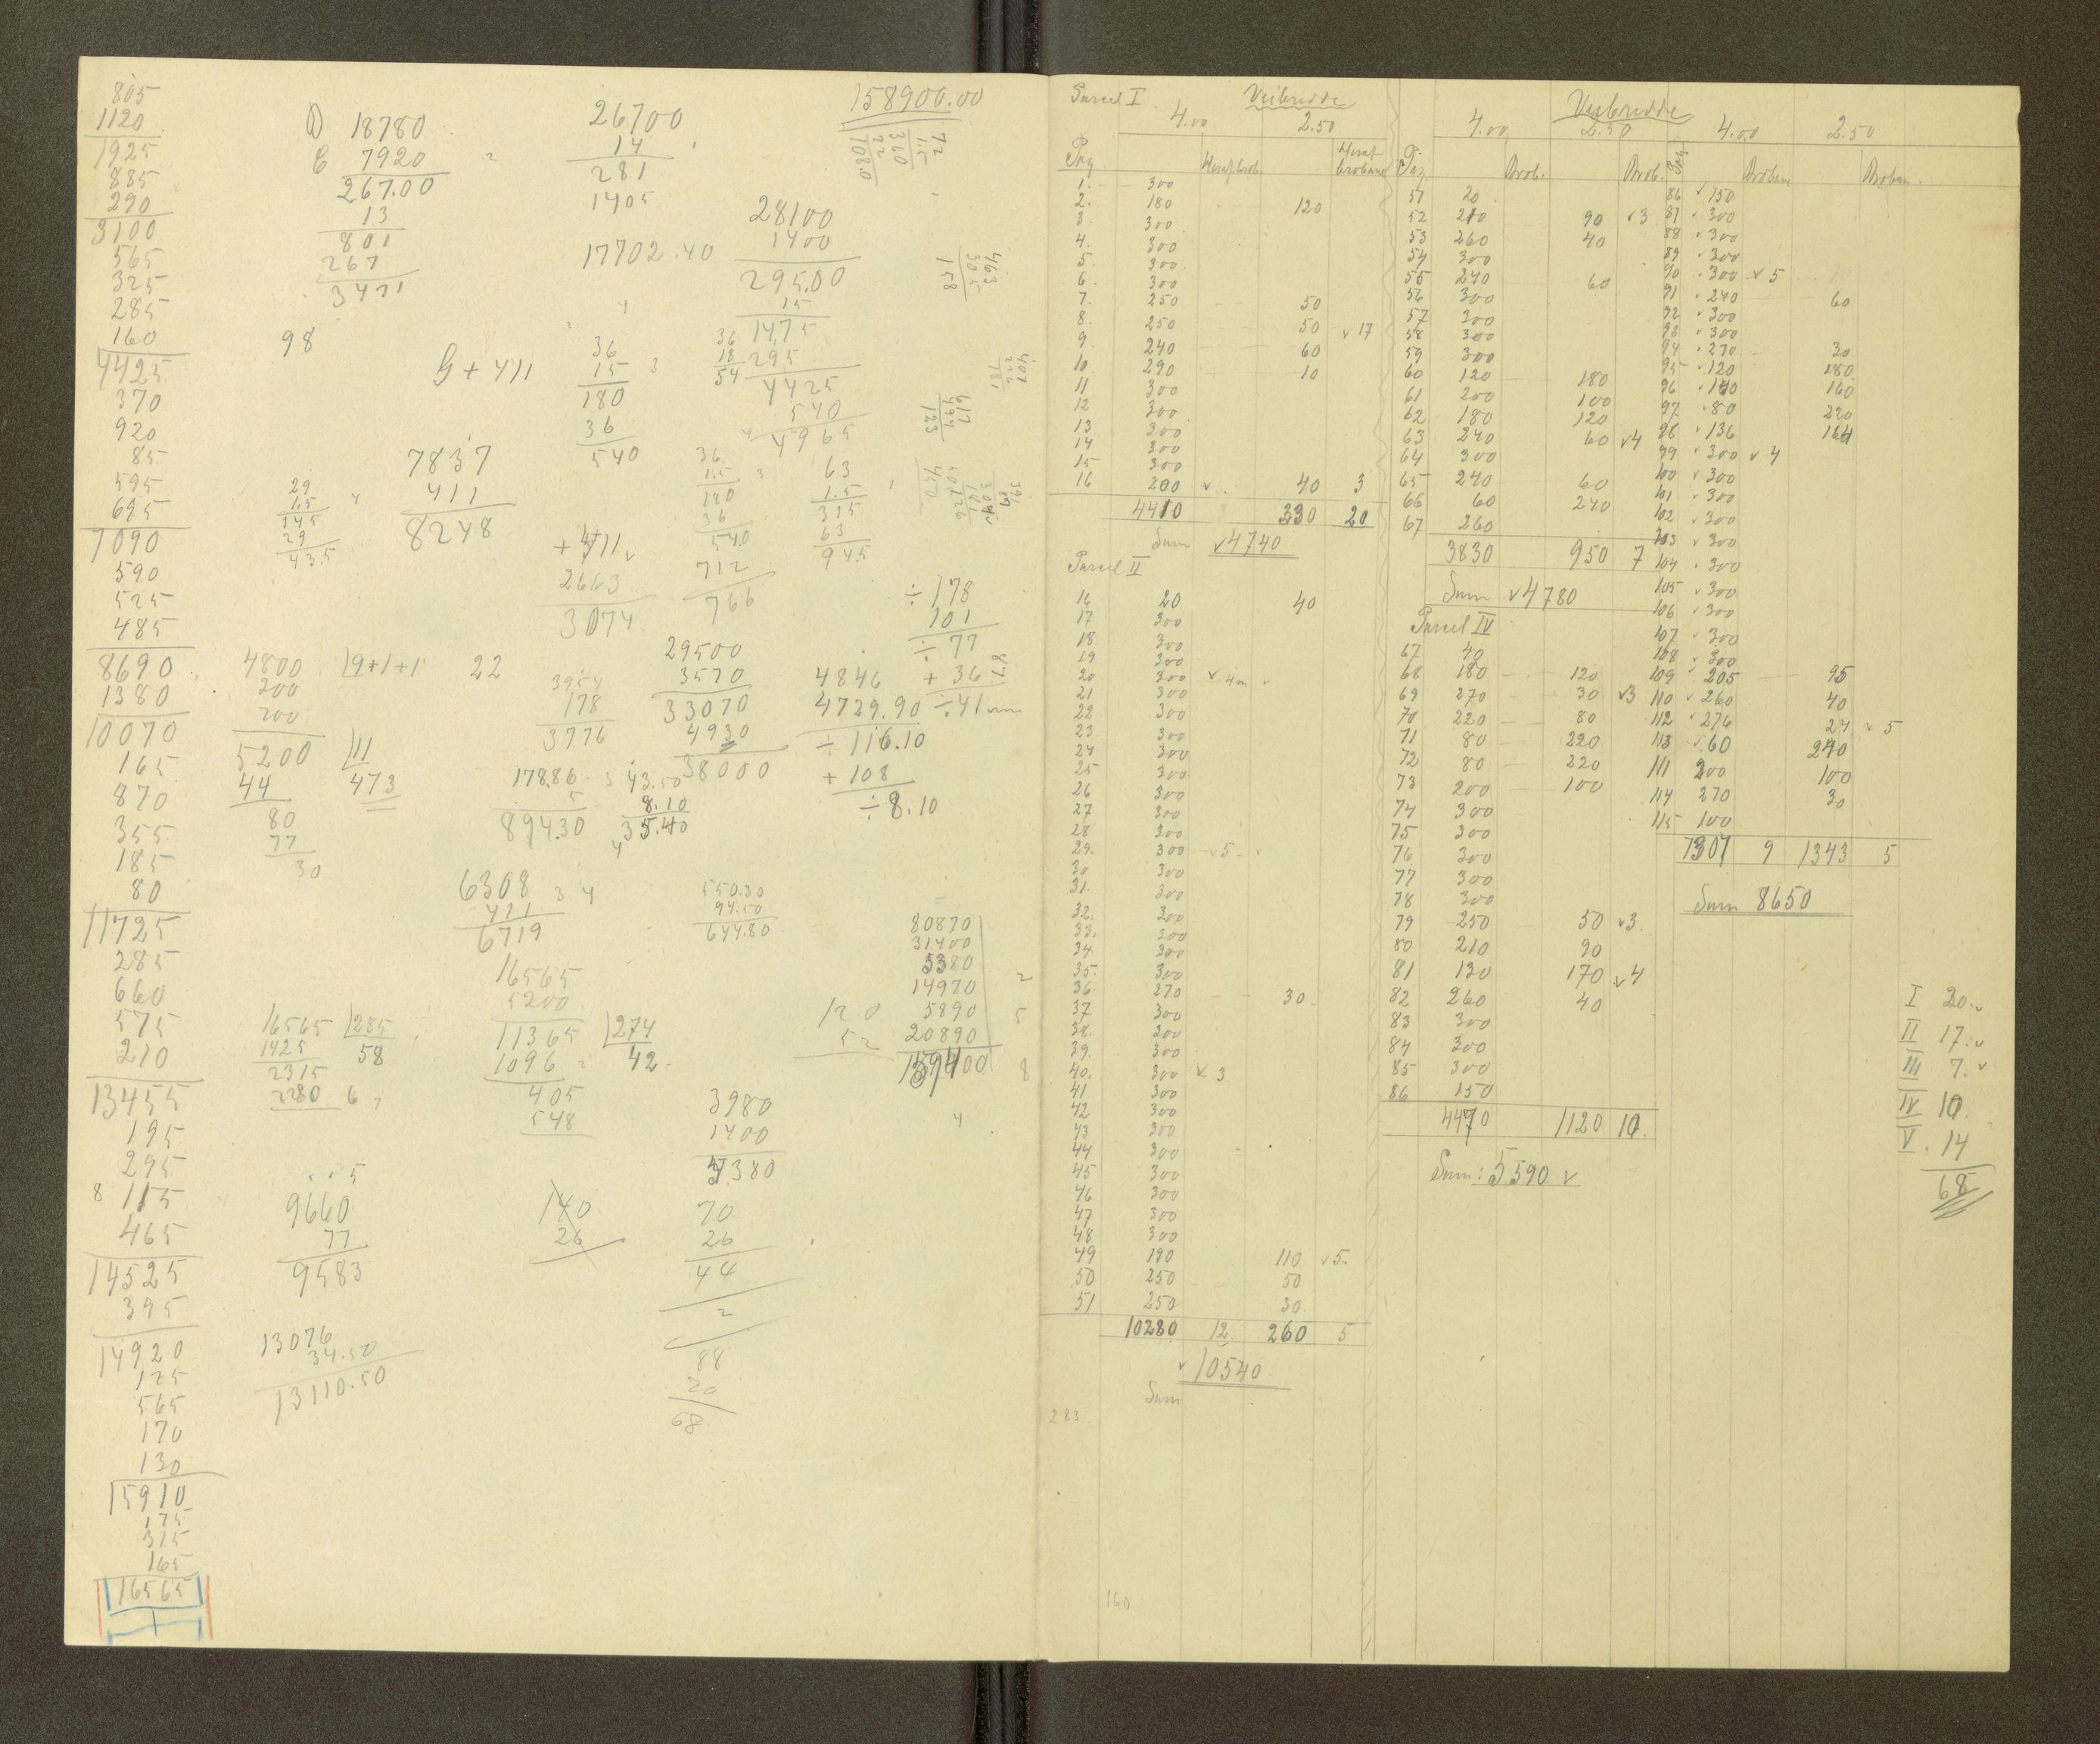 805
1120
1925
885
290
3100
565
325
285
160
4425
370
920
85
595
695
7090
590
525
485
8690
1380
10070
165
870
355
185
80
11725
285
660
575
210
13455
195
295
8 115
465
14525
395
14920
125
565
170
130
15910
175
315
165
16565
18780
7920
267.00
13
801
267
3471
98
G + 411
7837
411
8248
29
1.5
145
29
43.5
4800 19+1+1
200
200
5200 11
44 473
80
77
30
16565 285
1425 58
2315
2280 6
9660
77
9583
13076
34.50
13110.50
26700
14
281
1405
17702.40
36
15
180
36
540
+ 411
2663
3074
22
3954
178
3776
17886
5
894.30
43.50
8.10
35.40
6308 3 4
411
6719
16565
5200
11365 274
1096 42
405
548
140
26
158900.00
28100
1400
295.00
15
1475
295
4425
540
4965
36
18
54
36
1.5
180
36
54.0
712
766
63
1.5
315
63
94.5
29500
3570
33070
4930
38000
÷ 178
101
÷ 77
+ 36
÷ 41
4846
4729.90
÷ 116.10
+ 108
÷ 8.10
550.30
94.50
644.80
80870
31400
5380
14970
5890
20890
120
52
3980
1400
5380
70
26
44
2
88
20
68
72
1.5
360
72
108.0
463
305
158
617
494
123
Parcel I Veibredde
4.00 2.50
1. 300
2. 180 120
3. 300
4. 300
5. 300
6. 300
7. 250 50
8. 250 50 v 17
9. 240 60
10 290 10
11 300
12 300
13 300
14 300
15 300
16 200 v 40 3
4410 330 20
Sum v 4740
Parcel II
16 20 40
17 300
18 300
19 300
20 300 v 4m v
21 300
22 300
23 300
24 300
25 300
26 300
27 300
28 300
29. 300 v 5 v
30 300
31. 300
32. 300
33. 300
34. 300
35. 300
36. 270 30
37. 300
38. 300
39. 300
40. 300 v 3
41 300
42 300
43 300
44 300
45 300
46 300
47 300
48 300
49 190 110 v 5.
50 250 50
51 250 30
10280 12 260 5
v 10540
Sum
283
160
Veibredde
4.00 2.50 4.00 2.50
51 20
52 210 90 v 3
53 260 40
54 300
55 240 60
56 300
57 300
58 300
59 300
60 120 180
61 200 100
62 180 120
63 240 60 v 4
64 300
65 240 60
66 60 240
67 260
3830 950 7
Sum v 4780
Parcel IV
67 40
68 180 120
69 270 30 v 3
70 220 80
71 80 220
72 80 220
73 200 100
74 300
75 300
76 300
77 300
78 300
79 250 50 v 3.
80 210 90
81 130 170 v 4
82 260 40
83 300
84 300
85 300
86 150
4470 1120 10.
Sum: 5590 v
86 v 150
87 v 300
88 v 300
89 v 300
90 v 300 v 5
91 v 240 60
92 v 300
93 v 300
94 v 270 30
95 v 120 180
96 v 140 160
97 v 80 220
98 v 136 164
99 v 300 v 4
100 v 300
101 v 300
102 v 300
103 v 300
104 v 300
105 v 300
106 v 300
107 v 300
108 v 300
109 v 205 95
110 v 260 40
112 v 276 24 v 5
113 v 60 240
111 200 100
114 270 30
115 100
7307 9 1343 5
Sum 8650
I 20. v
II 17. v
III 7. v
IV 10.
V. 14
68